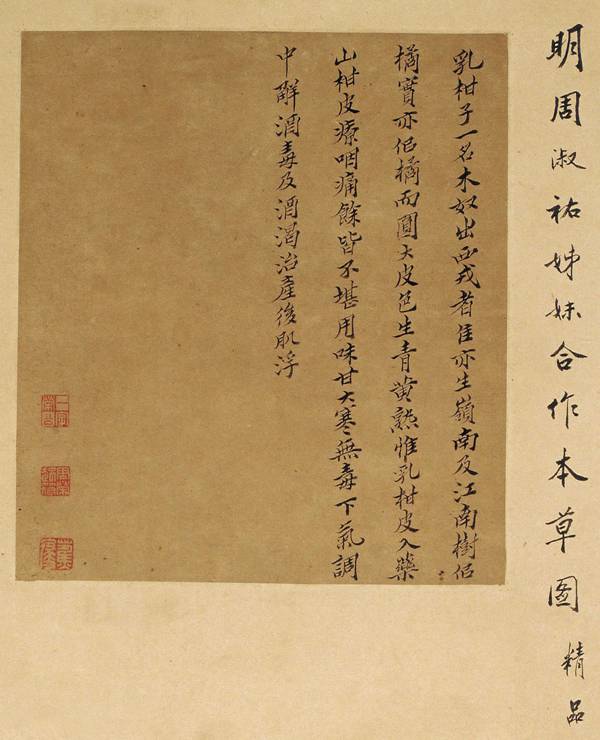 明周淑祐姊妹合作本草图精品
乳柑子一名木奴出西戎者佳亦生嶺南及江南樹侣
橘實亦侣橘而圓大皮色生青黄熟惟乳柑皮入藥
山柑皮療咽痛餘皆不堪用味甘大寒無毒下氣調
中解酒毒及酒渴治產後肌浮